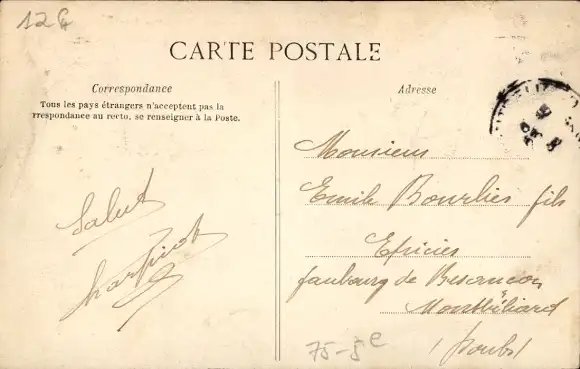 12€
CARTE POSTALE
Correspondance
Tous les pays étrangers n'acceptent pas la
rrespondance au recto, se renseigner à la Poste.
Salut
Adresse
Monsieur
Emile Bourlier fils
Epicier
faubourg de Besancon
Montbéliard
(Doubs)
75-5e